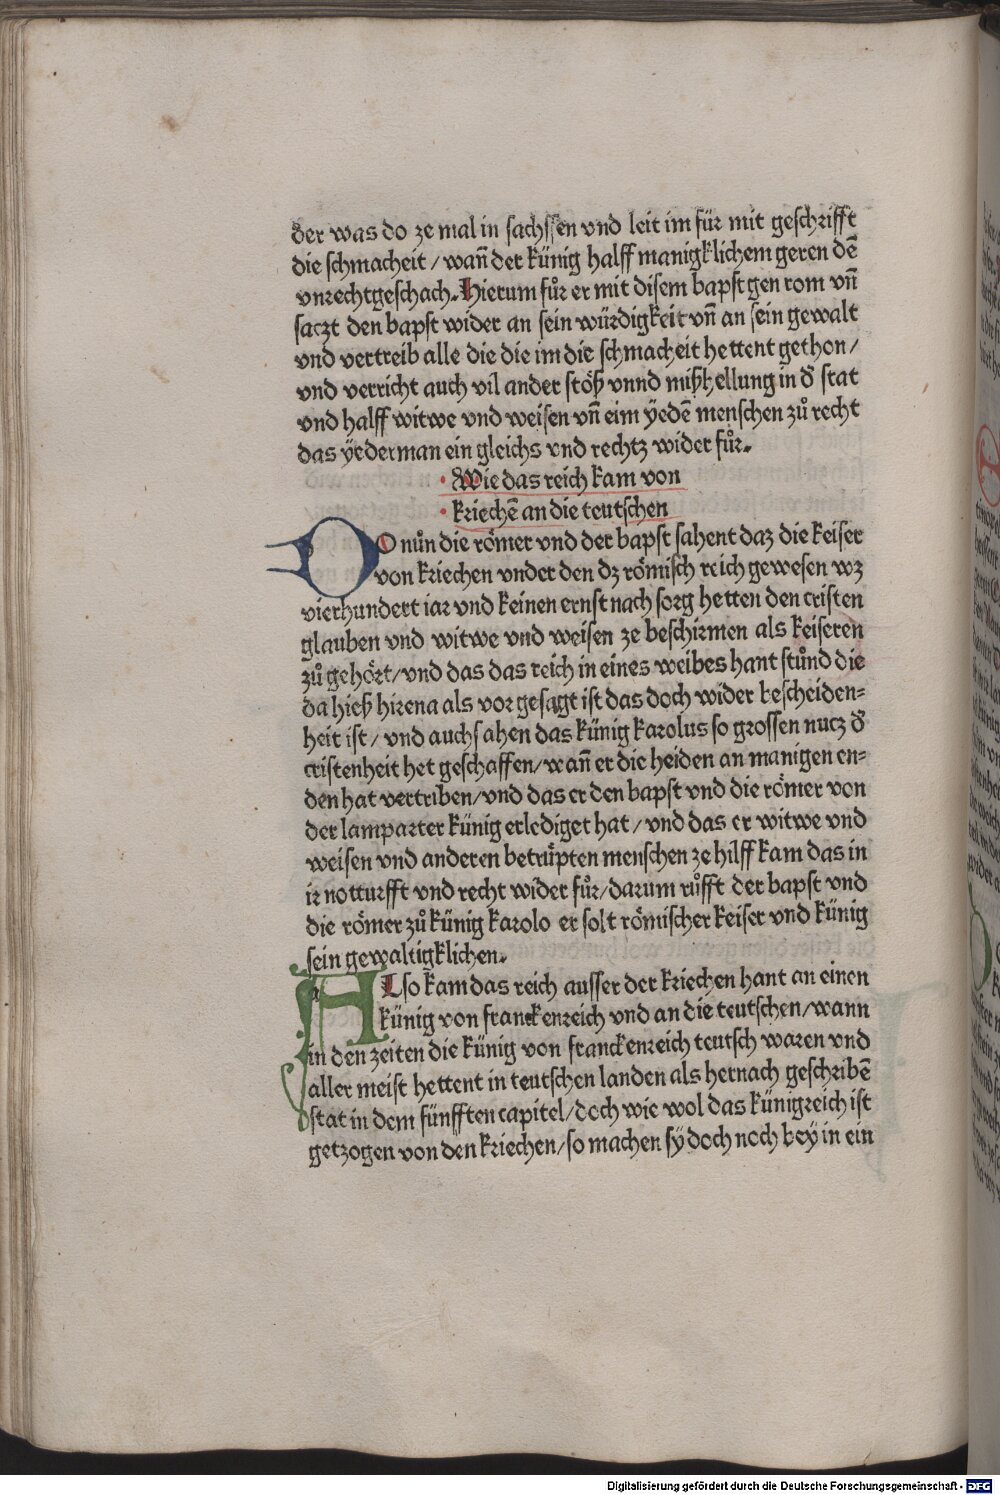 der was do ze mal in sachssen vnd leit im für mit geschrifft
die schmacheit / wañ der künig halff manigklichem geren dē
vnrecht geschach. Hierum fůr er mit disem bapst gen rom vñ
saczt den bapst wider an sein würdigkeit vñ an sein gewalt
vnd vertreib alle die die im die schmacheit hettent gethon /
vnd verricht auch vil ander stöß vnnd mißhellung in d̕ stat
vnd halff witwe vnd weisen vñ eim ÿedē menschen zů recht
das ÿederman ein gleichs vnd rechtz wider fůr.
· Wie das reich kam von
· kriechē an die teutschen
DO nůn die römer vnd der bapst sahent daz die keiser
von kriechen vnder den dz römisch reich gewesen wz
vierhundert iar vnd keinen ernst nach sorg hetten den cristen
glauben vnd witwe vnd weisen ze beschirmen als keiseren
zů gehört / vnd das das reich in eines weibes hant stůnd die
da hieß hirena als vor gesagt ist das doch wider bescheiden=
heit ist / vnd auch sahen das künig karolus so grossen nucz d̕
cristenheit het geschaffen / wañ er die heiden an manigen en=
den hat vertriben / vnd das er den bapst vnd die römer von
der lamparter künig erlediget hat / vnd das er witwe vnd
weisen vnd anderen betrüpten menschen ze hilff kam das in
ir notturfft vnd recht wider fůr / darum růfft der bapst vnd
die römer zů künig karolo er solt römischer keiser vnd künig
sein gewaltigklichen.
ALso kam das reich ausser der kriechen hant an einen
künig von franckenreich vnd an die teutschen / wann
in den zeiten die künig von franckenreich teutsch waren vnd
aller meist hettent in teutschen landen als hernach geschribē
stat in dem fünfften capitel / doch wie wol das künigreich ist
getzogen von den kriechen / so machen sÿ doch noch beÿ in ein
Digitalisierung gefördert durch die Deutsche Forschungsgemeinschaft - DFG